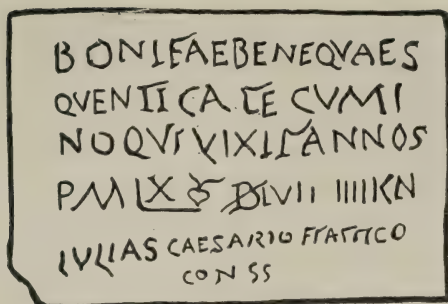 BONIFAEBENEQVAES
QVENTI CATECVMI
NOQVIVIXITANNOS
PM LX VII IIII KN
IVLIAS CAESARIO ET ATTICO
CONSS